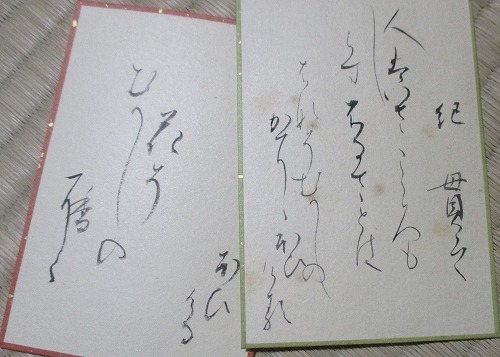 紀 貫之
人はいさこゝろも
しらすふるさとは
はなそむかしの
かにゝほひける
花そ
むかしの
香に
ほひ
ける